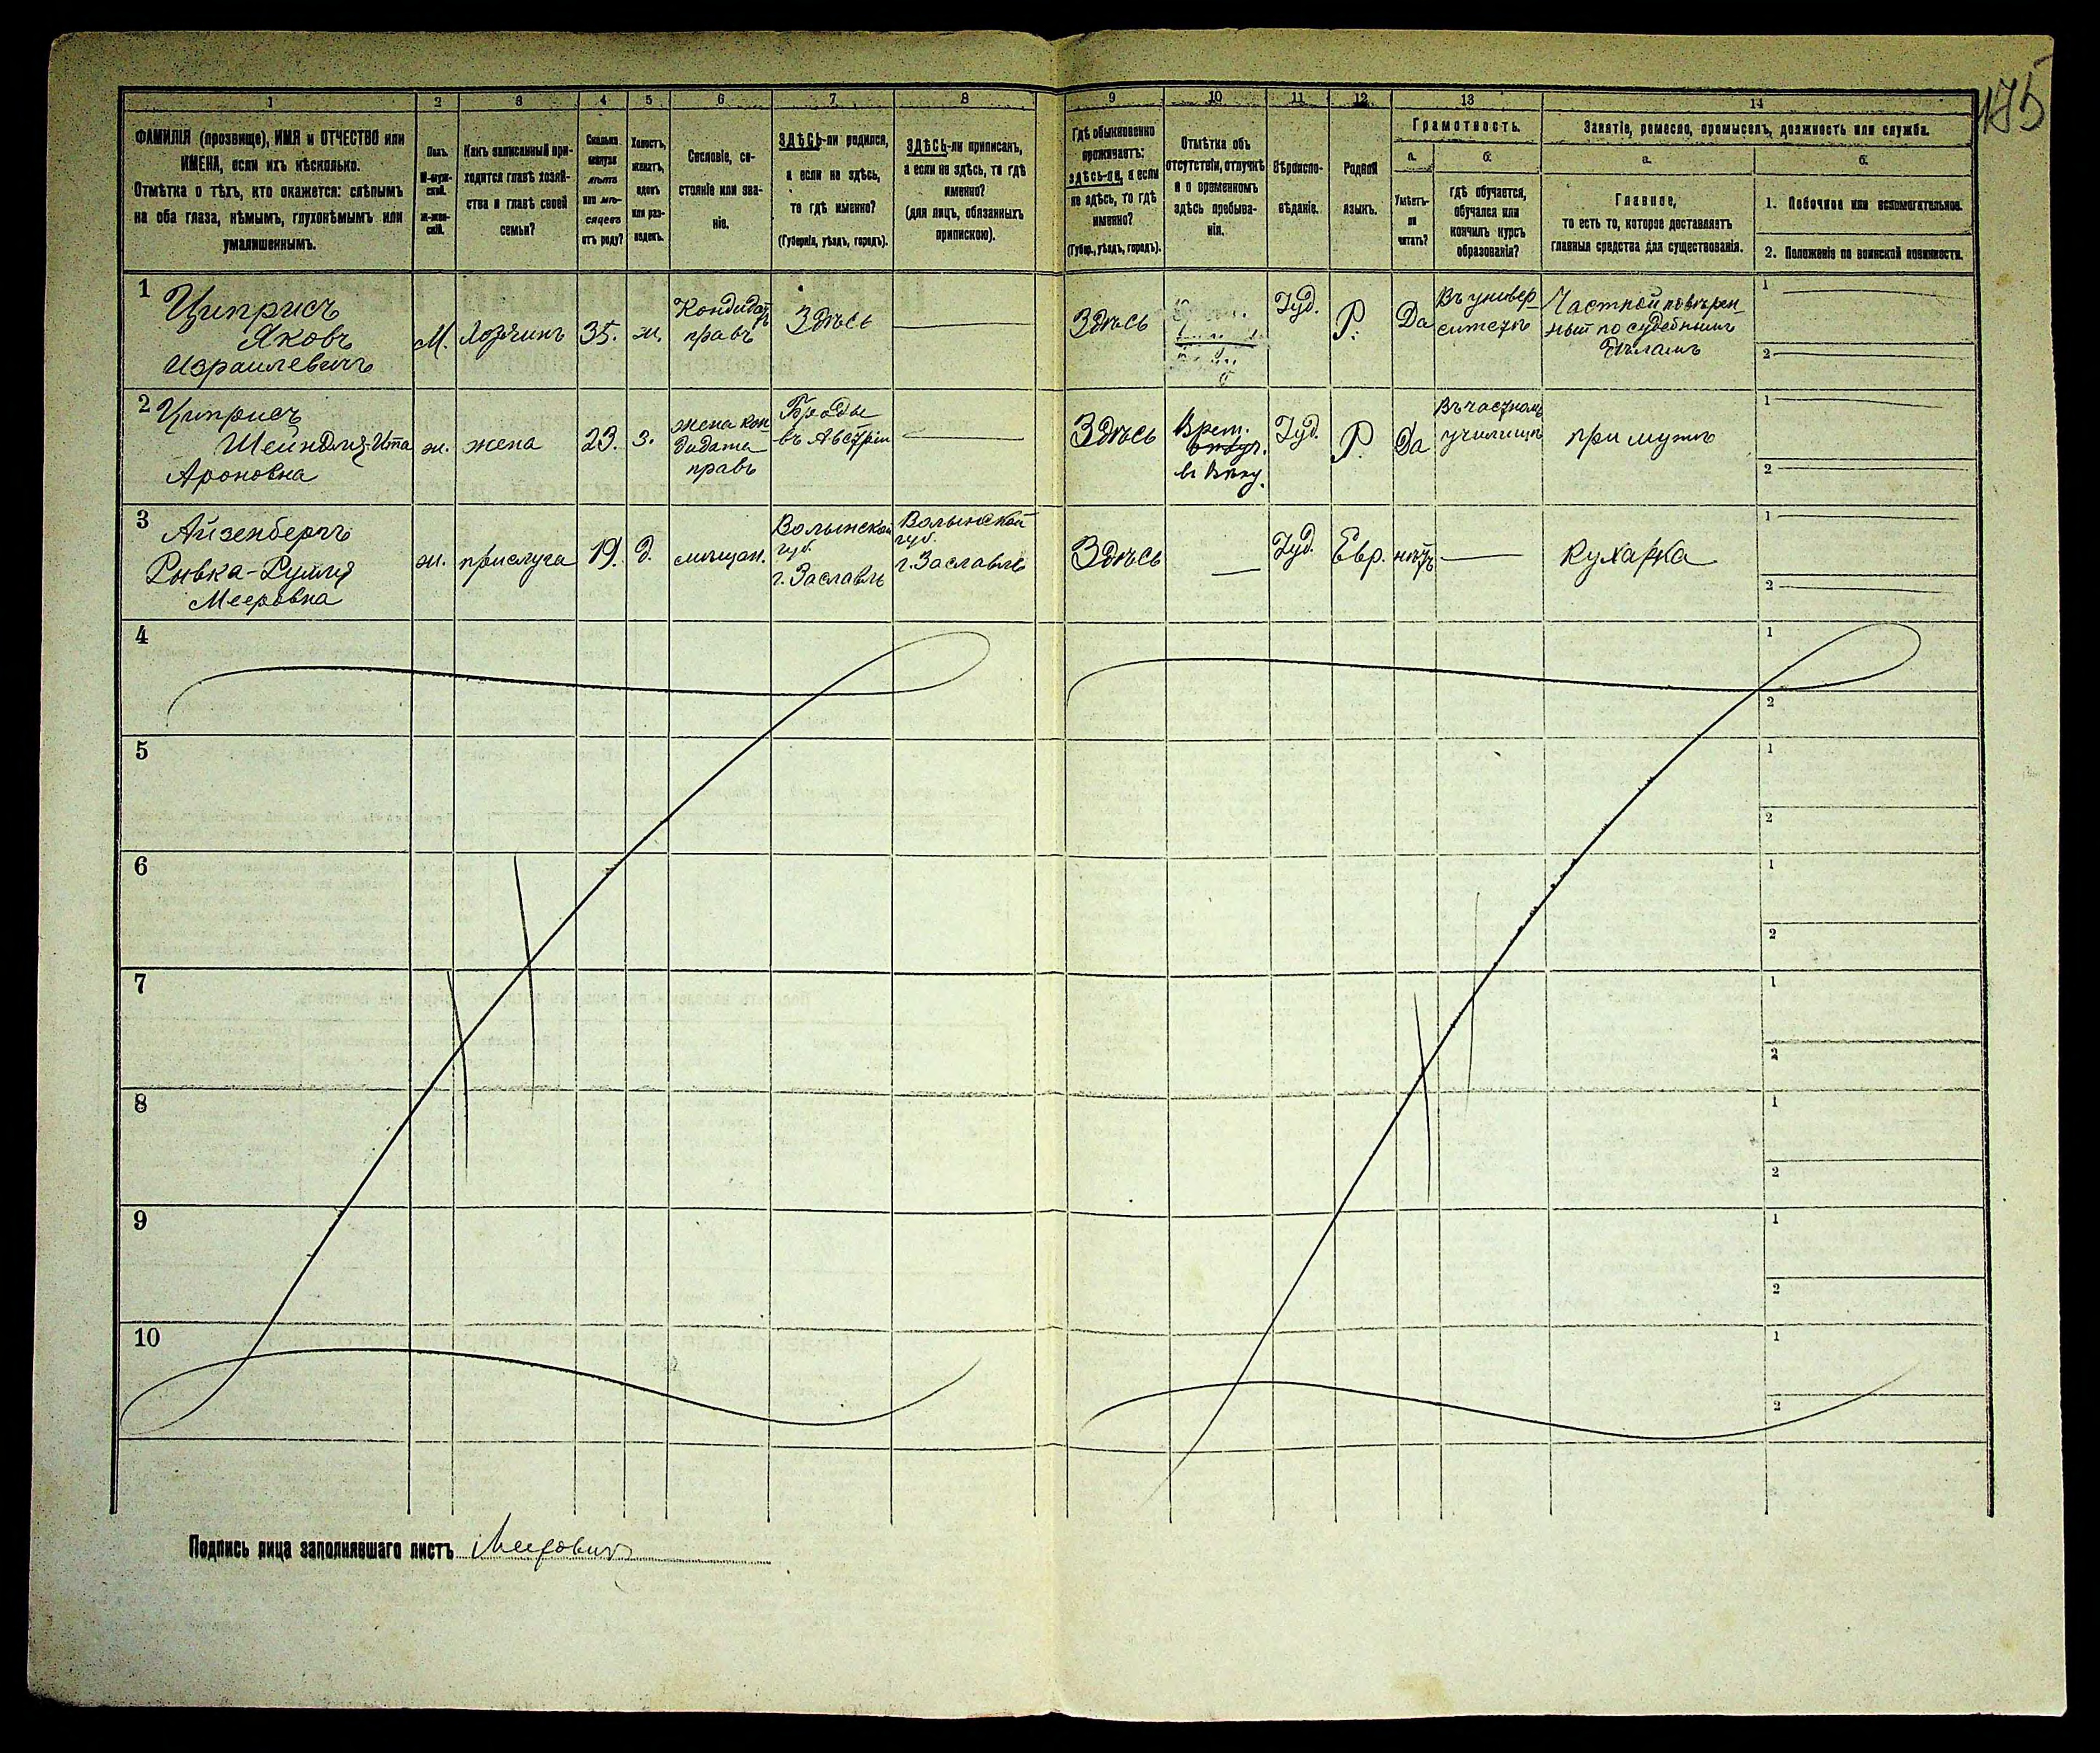 175
1 2 3 4 5 6 7 8 9 10 11 12 13 14
ФАМИЛІЯ (прозвище), ИМЯ и ОТЧЕСТВО или
ИМЕНА, если ихъ нѣсколько.
Отмѣтка о тѣхъ, кто окажется: слѣпымъ
на оба глаза, нѣмымъ, глухонѣмымъ или
умалишеннымъ.
Полъ.
М-муж-
ской.
Ж-жен-
скій.
Какъ записанный при-
ходится главѣ хозяй-
ства и главѣ своей
семьи?
Сколько
минуло
лѣтъ
или мѣ-
сяцевъ
отъ роду?
Холостъ,
женатъ,
вдовъ
или раз-
веденъ.
Сословіе, со-
стояніе или зва-
ніе.
ЗДѢСЬ-ли родился,
а если не здѣсь,
то гдѣ именно?
(Губернія, уѣздъ, городъ).
ЗДѢСЬ-ли приписанъ,
а если не здѣсь, то гдѣ
именно?
(для лицъ, обязанныхъ
припискою).
Гдѣ обыкновенно
проживаетъ:
здѣсь-ли, а если
не здѣсь, то гдѣ
именно?
(Губер., уѣздъ, городъ).
Отмѣтка объ
отсутствіи, отлучкѣ
и о временномъ
здѣсь пребыва-
ніи.
Вѣроиспо-
вѣданіе.
Родной
языкъ.
Грамотность.
а.
Умѣетъ-
ли
читать?
б.
гдѣ обучается,
обучался или
кончилъ курсъ
образованія?
Занятіе, ремесло, промыселъ, должность или служба.
а.
Главное,
то есть то, которое доставляетъ
главныя средства для существованія.
б.
1. Побочное или вспомогательное.
2. Положеніе по воинской повинности.
1
Циприсъ
Яковъ
Израилевичъ
М.
Хозяинъ
35.
ж.
Кондидатъ
правъ
Здѣсь
Здѣсь
Іуд.
Р.
Да
Въ универ-
ситетѣ
Частной повѣрен-
ный по судебнымъ
дѣламъ
1
2
2
Циприсъ
Шейндля-Ита
Ароновна
ж.
жена
23.
з.
жена кон-
дидата
правъ
Броды
въ Австріи
Здѣсь
Врем.
отлуч.
въ Вѣну.
Іуд.
Р.
Да
Въ частномъ
училищѣ
при мужѣ
1
2
3
Айзенбергъ
Рывка-Рухля
Мееровна
ж.
прислуга
19.
д.
мѣщан.
Волынской
губ.
г. Заславль
Волынской
губ.
г. Заславль
Здѣсь
Іуд.
Евр.
нѣтъ
Кухарка
1
2
4
1
2
5
1
2
6
1
2
7
1
2
8
1
2
9
1
2
10
1
2
Подпись лица заполнявшаго листъ